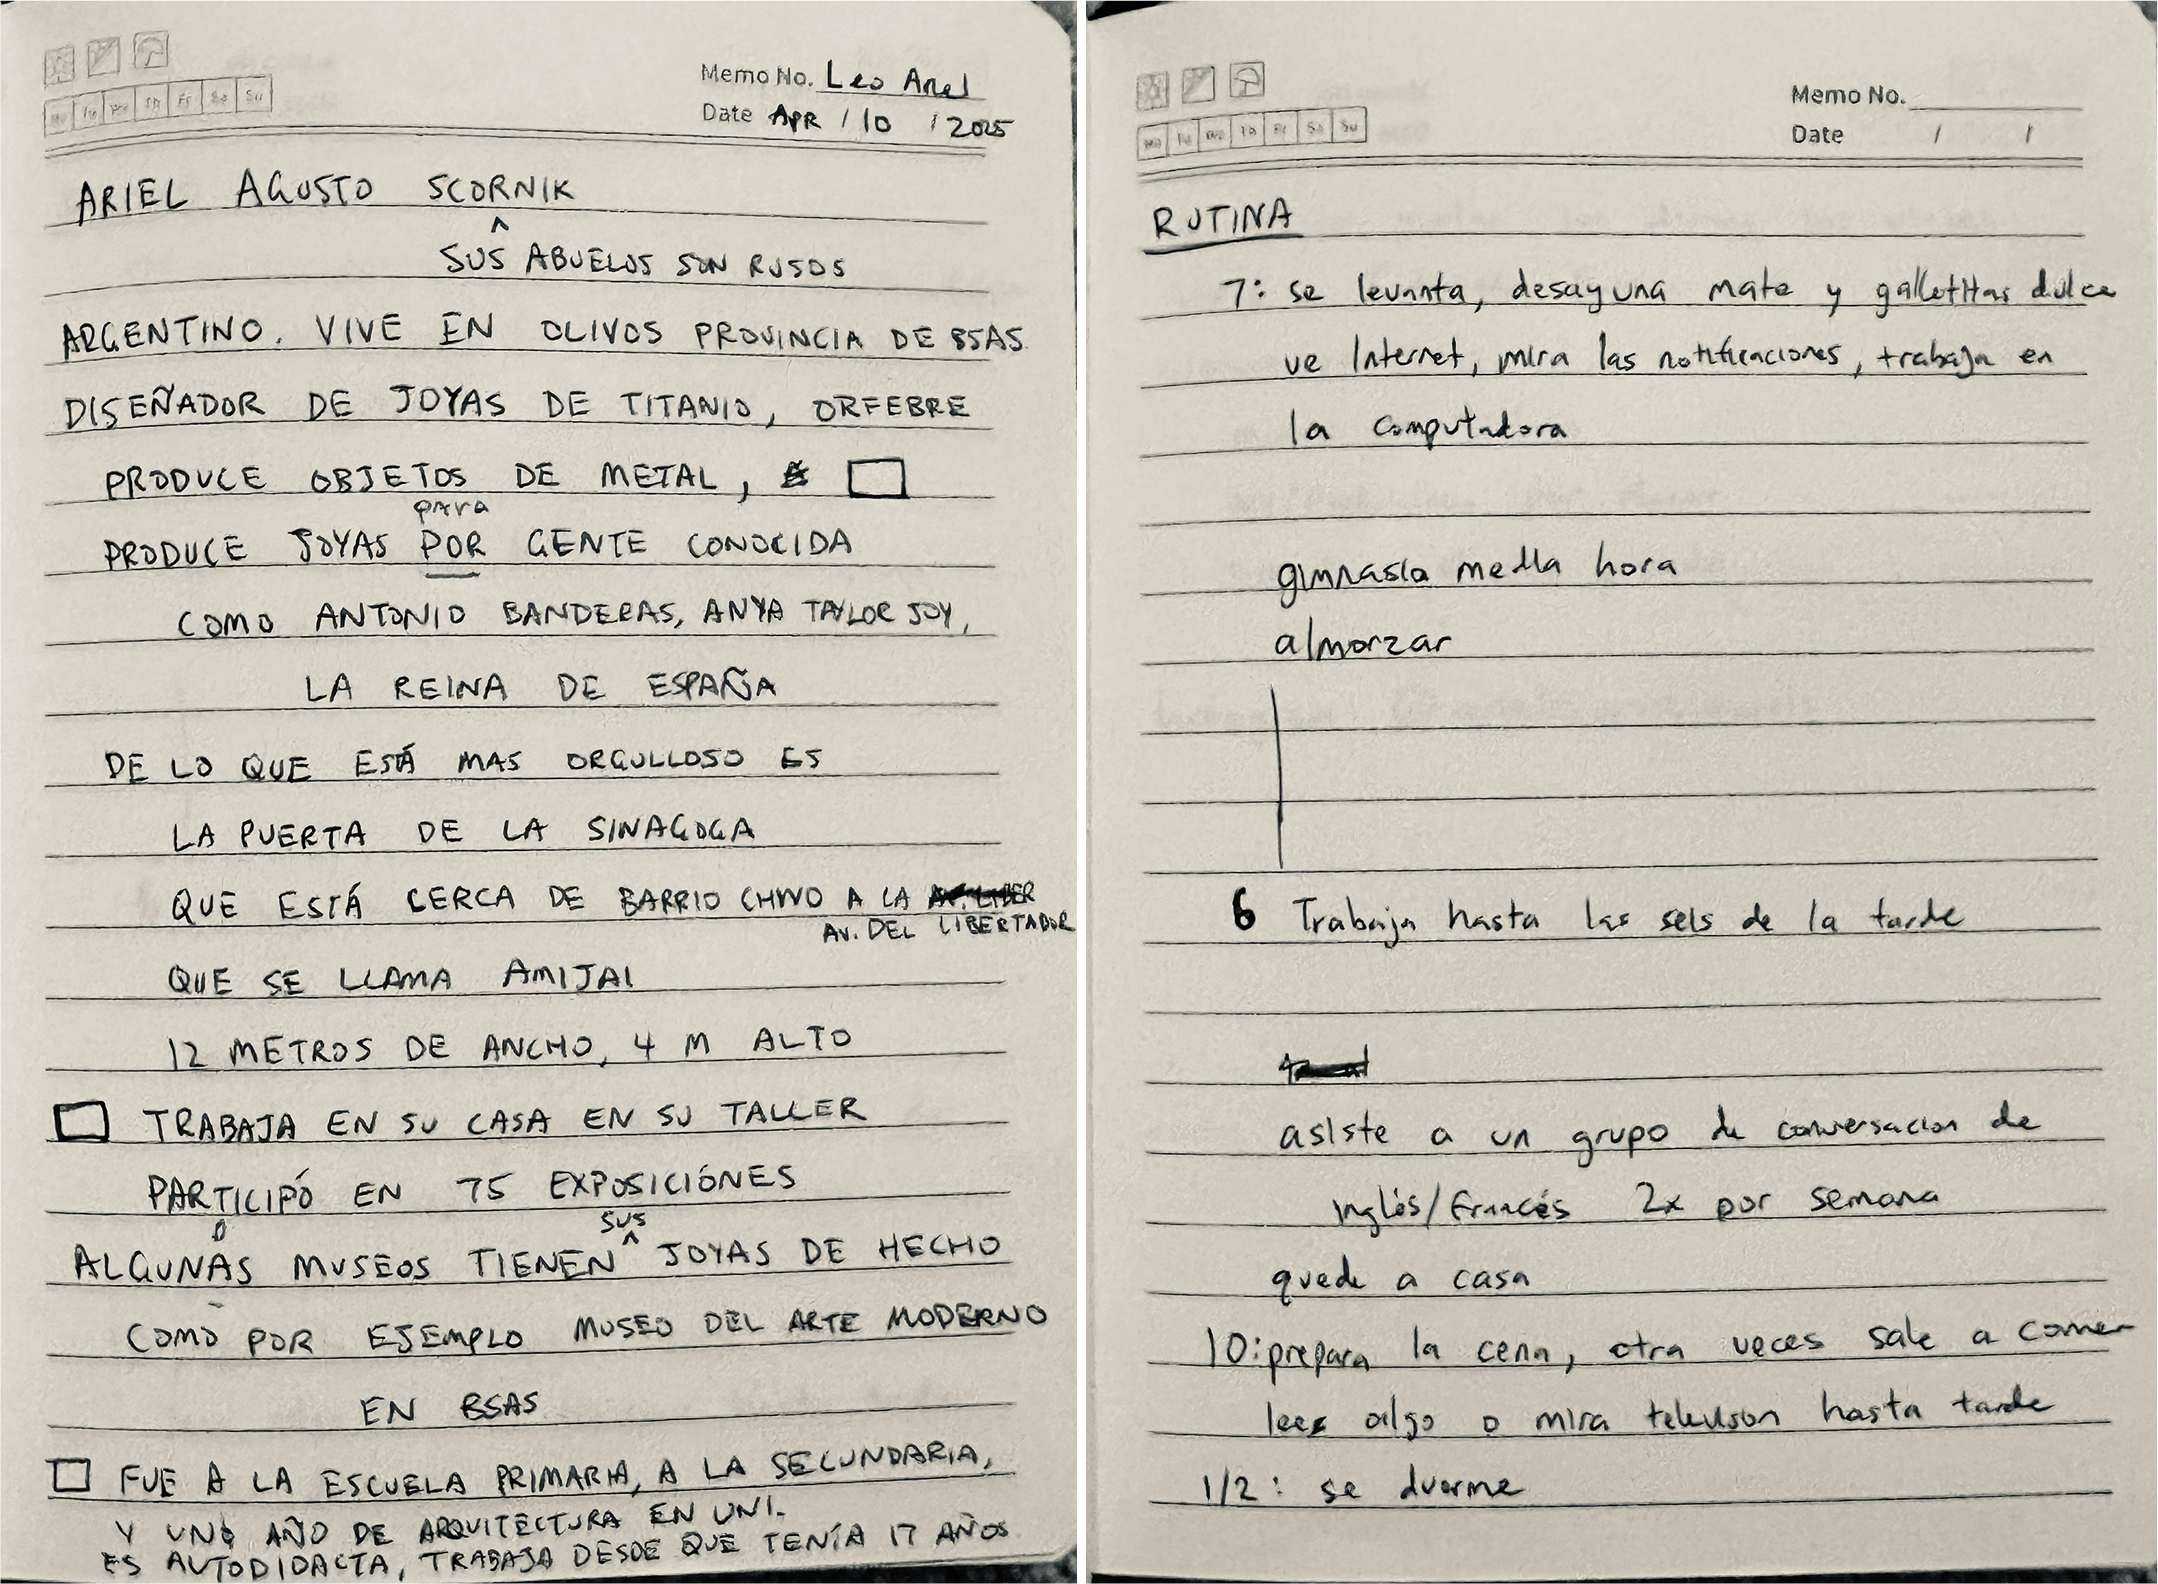 Memo No. Leo Ariel
Date APR / 10 / 2025
ARIEL AGUSTO SCORNIK
^
SUS ABUELOS SON RUSOS
ARGENTINO. VIVE EN OLIVOS PROVINCIA DE BSAS
DISEÑADOR DE JOYAS DE TITANIO, ORFEBRE
PRODUCE OBJETOS DE METAL,
para
PRODUCE JOYAS POR GENTE CONOCIDA
COMO ANTONIO BANDERAS, ANYA TAYLOR JOY,
LA REINA DE ESPAÑA
DE LO QUE ESTÁ MAS ORGULLOSO ES
LA PUERTA DE LA SINAGOGA
QUE ESTÁ CERCA DE BARRIO CHINO A LA AV. LIBER
AV. DEL LIBERTADOR
QUE SE LLAMA AMIJAI
12 METROS DE ANCHO, 4 M ALTO
TRABAJA EN SU CASA EN SU TALLER
PARTICIPÓ EN 75 EXPOSICIÓNES
O SUS
ALGUNAS MUSEOS TIENEN ^ JOYAS DE HECHO
COMO POR EJEMPLO MUSEO DEL ARTE MODERNO
EN BSAS
FUE A LA ESCUELA PRIMARIA, A LA SECUNDARIA,
Y UNO AÑO DE ARQUITECTURA EN UNI.
ES AUTODIDACTA, TRABAJA DESDE QUE TENÍA 17 AÑOS
Mo Tu We Th Fr Sa Su
Memo No.
Date / /
RUTINA
7: se levanta, desayuna mate y galletitas dulce
ve Internet, mira las notificaciones, trabaja en
la computadora
gimnasia media hora
almorzar
6 Trabaja hasta las seis de la tarde
asiste a un grupo de conversacion de
inglés/francés 2x por semana
quede a casa
10: prepara la cena, otra veces sale a comer
lee algo o mira television hasta tarde
1/2: se duerme